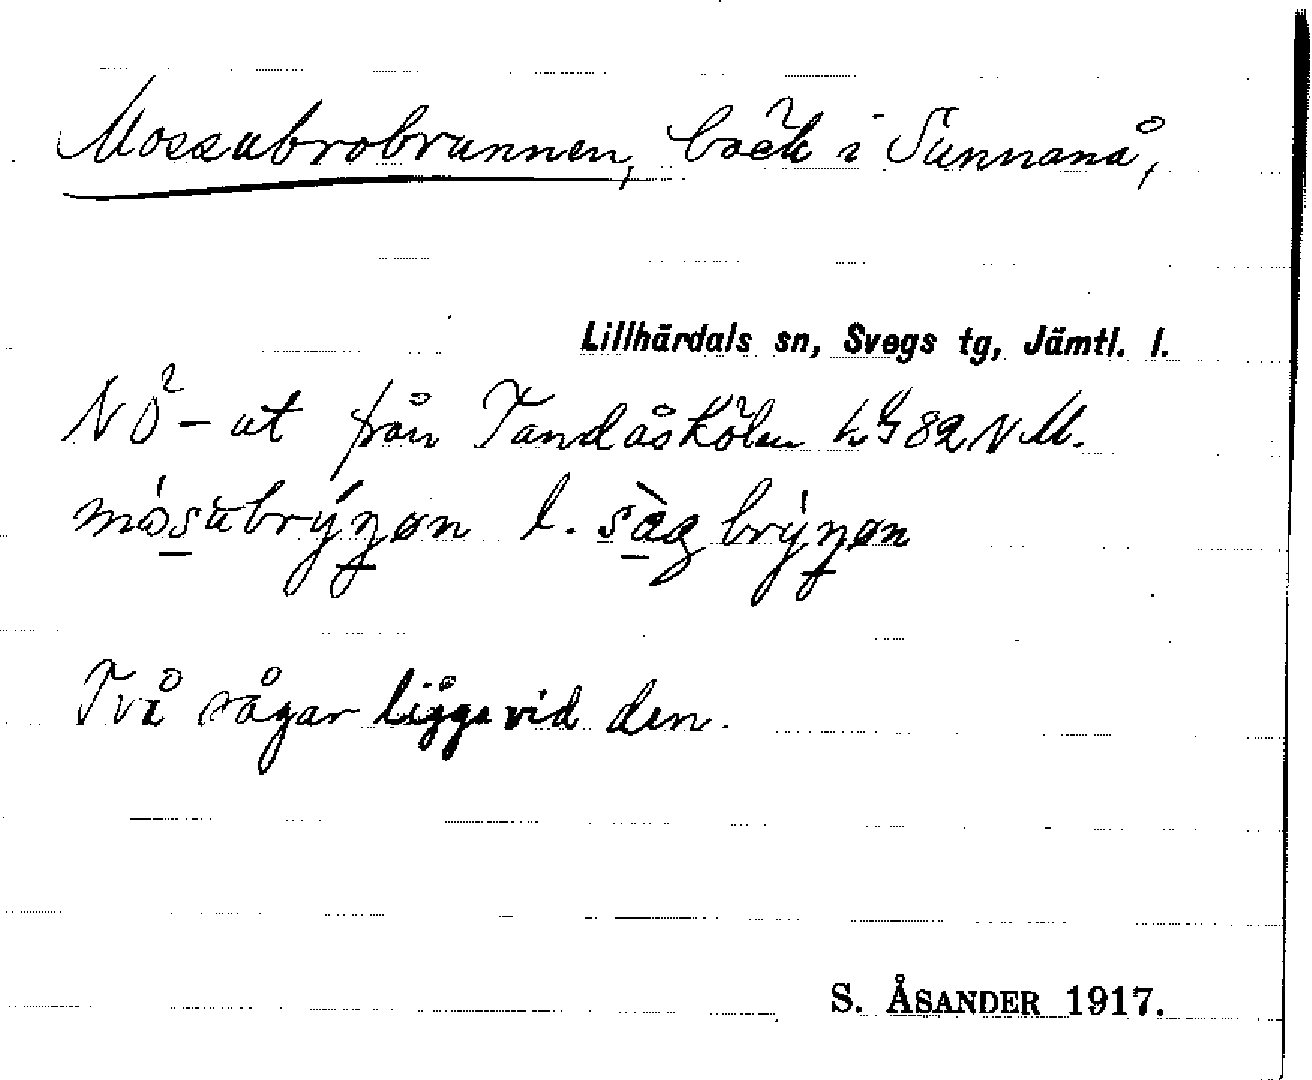 Mossubrobrunnen, bäck i Sunnanå,
Lillhärdals sn, Svegs tg, Jämtl. l.
NÖ-ut från Tandåskölen LG 82 N M.
l.
Två sågar ligga vid den.
S. ÅSANDER 1917.